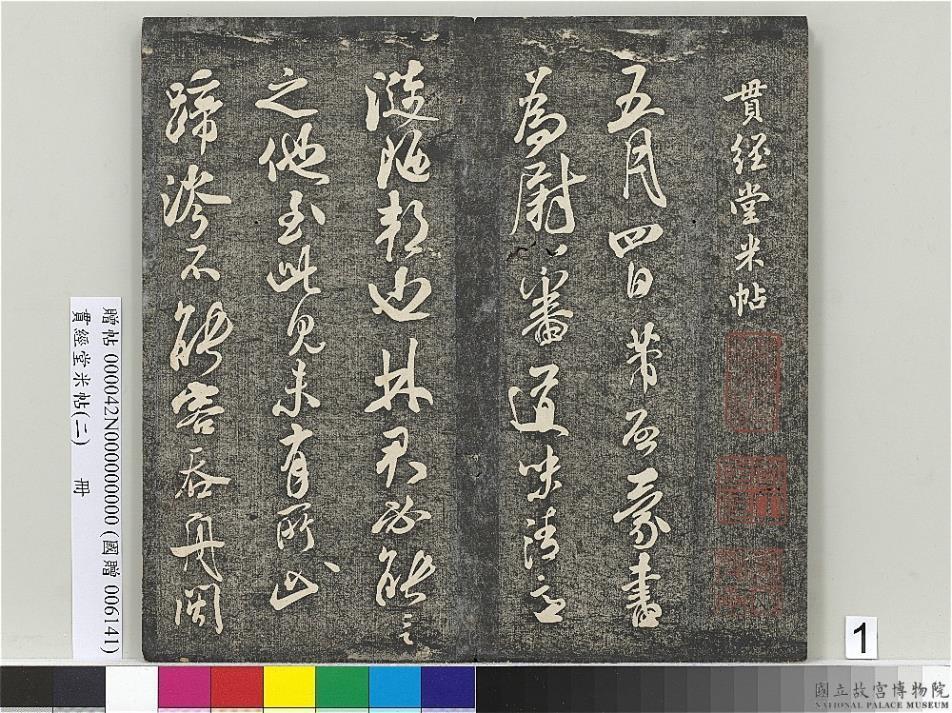 貫經堂米帖
五月四日芾啓蒙書
為尉番道味清

陋邦也林君必能言
之他至此見未有所
蹄涔不能容吞舟閩
贈帖 000042N000000000 (國贈 006141)
貫經堂米帖(二) 冊
1
國立故宮博物院
NATIONAL PALACE MUSEUM